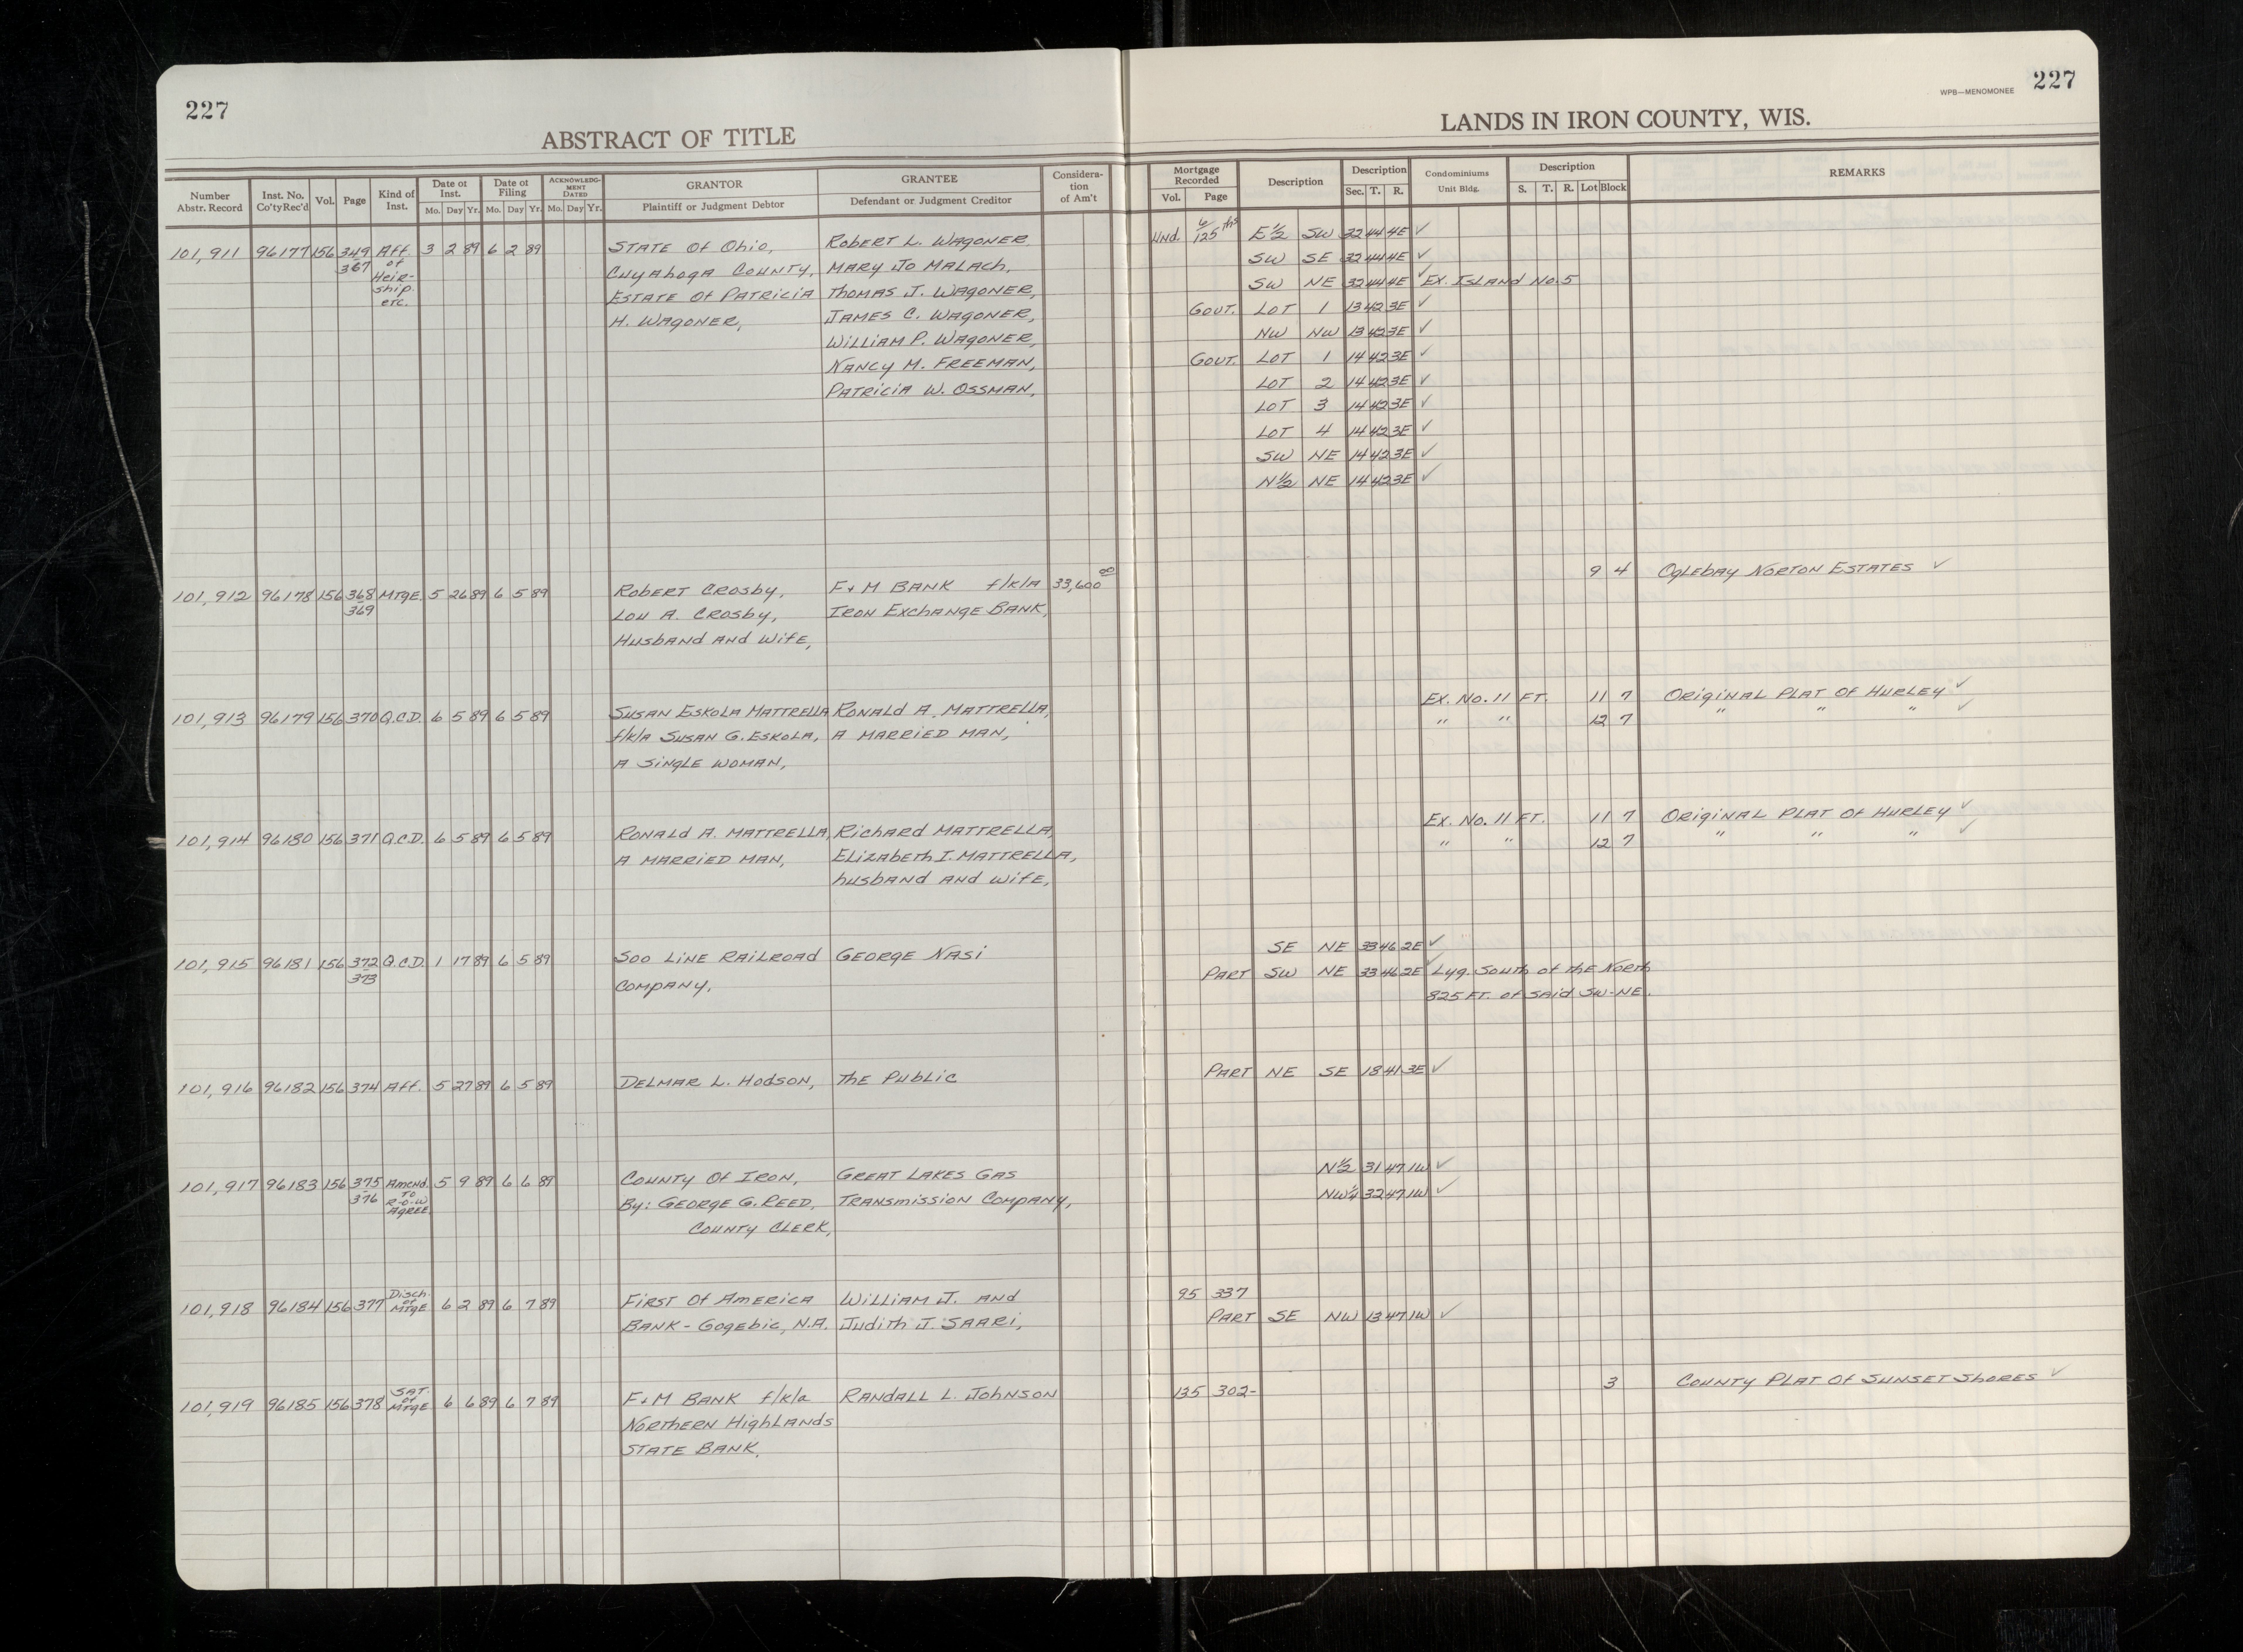 227
ABSTRACT OF TITLE
Number Abstr. Record
Inst. No. Co'ty Rec'd
Vol.
Page
Kind of Inst.
Date of Inst.
Mo. Day Yr.
Date of Filing
Mo. Day Yr.
ACKNOWLEDG-MENT DATED
Mo. Day Yr.
GRANTOR
Plaintiff or Judgment Debtor
GRANTEE
Defendant or Judgment Creditor
Considera-tion of Am't
101,911 96177 156 349 Aff. 3 2 89 6 2 89 STATE Of Ohio, Robert L. Wagoner
367 of Cuyahoga County, Mary Jo Malach,
Heir- Estate Of Patricia Thomas J. Wagoner,
ship. H. Wagoner, James C. Wagoner,
etc. William P. Wagoner,
Nancy M. Freeman,
Patricia W. Ossman,
101,912 96178 156 368 MTgE. 5 26 89 6 5 89 Robert Crosby, F+M Bank f/k/a 33,600 00
369 Lou A. Crosby, Iron Exchange Bank,
Husband and Wife,
101,913 96179 156 370 Q.C.D. 6 5 89 6 5 89 Susan Eskola Mattrella Ronald A. Mattrella,
f/k/a Susan G. Eskola, A married man,
A single woman,
101,914 96180 156 371 Q.C.D. 6 5 89 6 5 89 Ronald A. Mattrella, Richard Mattrella,
A married man, Elizabeth I. Mattrella,
husband and wife,
101,915 96181 156 372 Q.C.D. 1 17 89 6 5 89 Soo Line Railroad George Nasi
373 Company,
101,916 96182 156 374 Aff. 5 27 89 6 5 89 Delmar L. Hodson, The Public
101,917 96183 156 375 Amend. 5 9 89 6 6 89 County Of Iron, Great Lakes Gas
376 To By: George G. Reed, Transmission Company,
R-O-W County Clerk,
Agree.
101,918 96184 156 377 Disch. of MTgE 6 2 89 6 7 89 First Of America William J. and
Bank - Gogebic, N.A. Judith J. Saari,
101,919 96185 156 378 Sat. of MTgE 6 6 89 6 7 89 F+M Bank f/k/a Randall L. Johnson
Northern Highlands
State Bank,
WPB—MENOMONEE 227
LANDS IN IRON COUNTY, WIS.
Mortgage Recorded
Vol. Page
Description
Description
Sec. T. R.
Condominiums
Unit Bldg.
Description
S. T. R. Lot Block
REMARKS
Und. 6/125 ths E½ SW 32 44 4E ✓
SW SE 32 44 4E ✓
SW NE 32 44 4E ✓ Ex. Island No. 5
Gout. Lot 1 13 42 3E ✓
NW NW 13 42 3E ✓
Gout. Lot 1 14 42 3E ✓
Lot 2 14 42 3E ✓
Lot 3 14 42 3E ✓
Lot 4 14 42 3E ✓
SW NE 14 42 3E ✓
N½ NE 14 42 3E ✓
9 4 Oglebay Norton Estates ✓
Ex. No. 11 FT. 11 7 Original Plat Of Hurley ✓
" " 12 7 " " " ✓
Ex. No. 11 FT. 11 7 Original Plat Of Hurley ✓
" " 12 7 " " " ✓
SE NE 33 46 2E ✓
Part SW NE 33 46 2E ✓ Lyg. South of the North
825 FT. of said SW-NE.
Part NE SE 18 41 3E ✓
N½ 31 47 1W ✓
NW¼ 32 47 1W ✓
95 337
Part SE NW 13 47 1W ✓
135 302- 3 County Plat Of Sunset Shores ✓